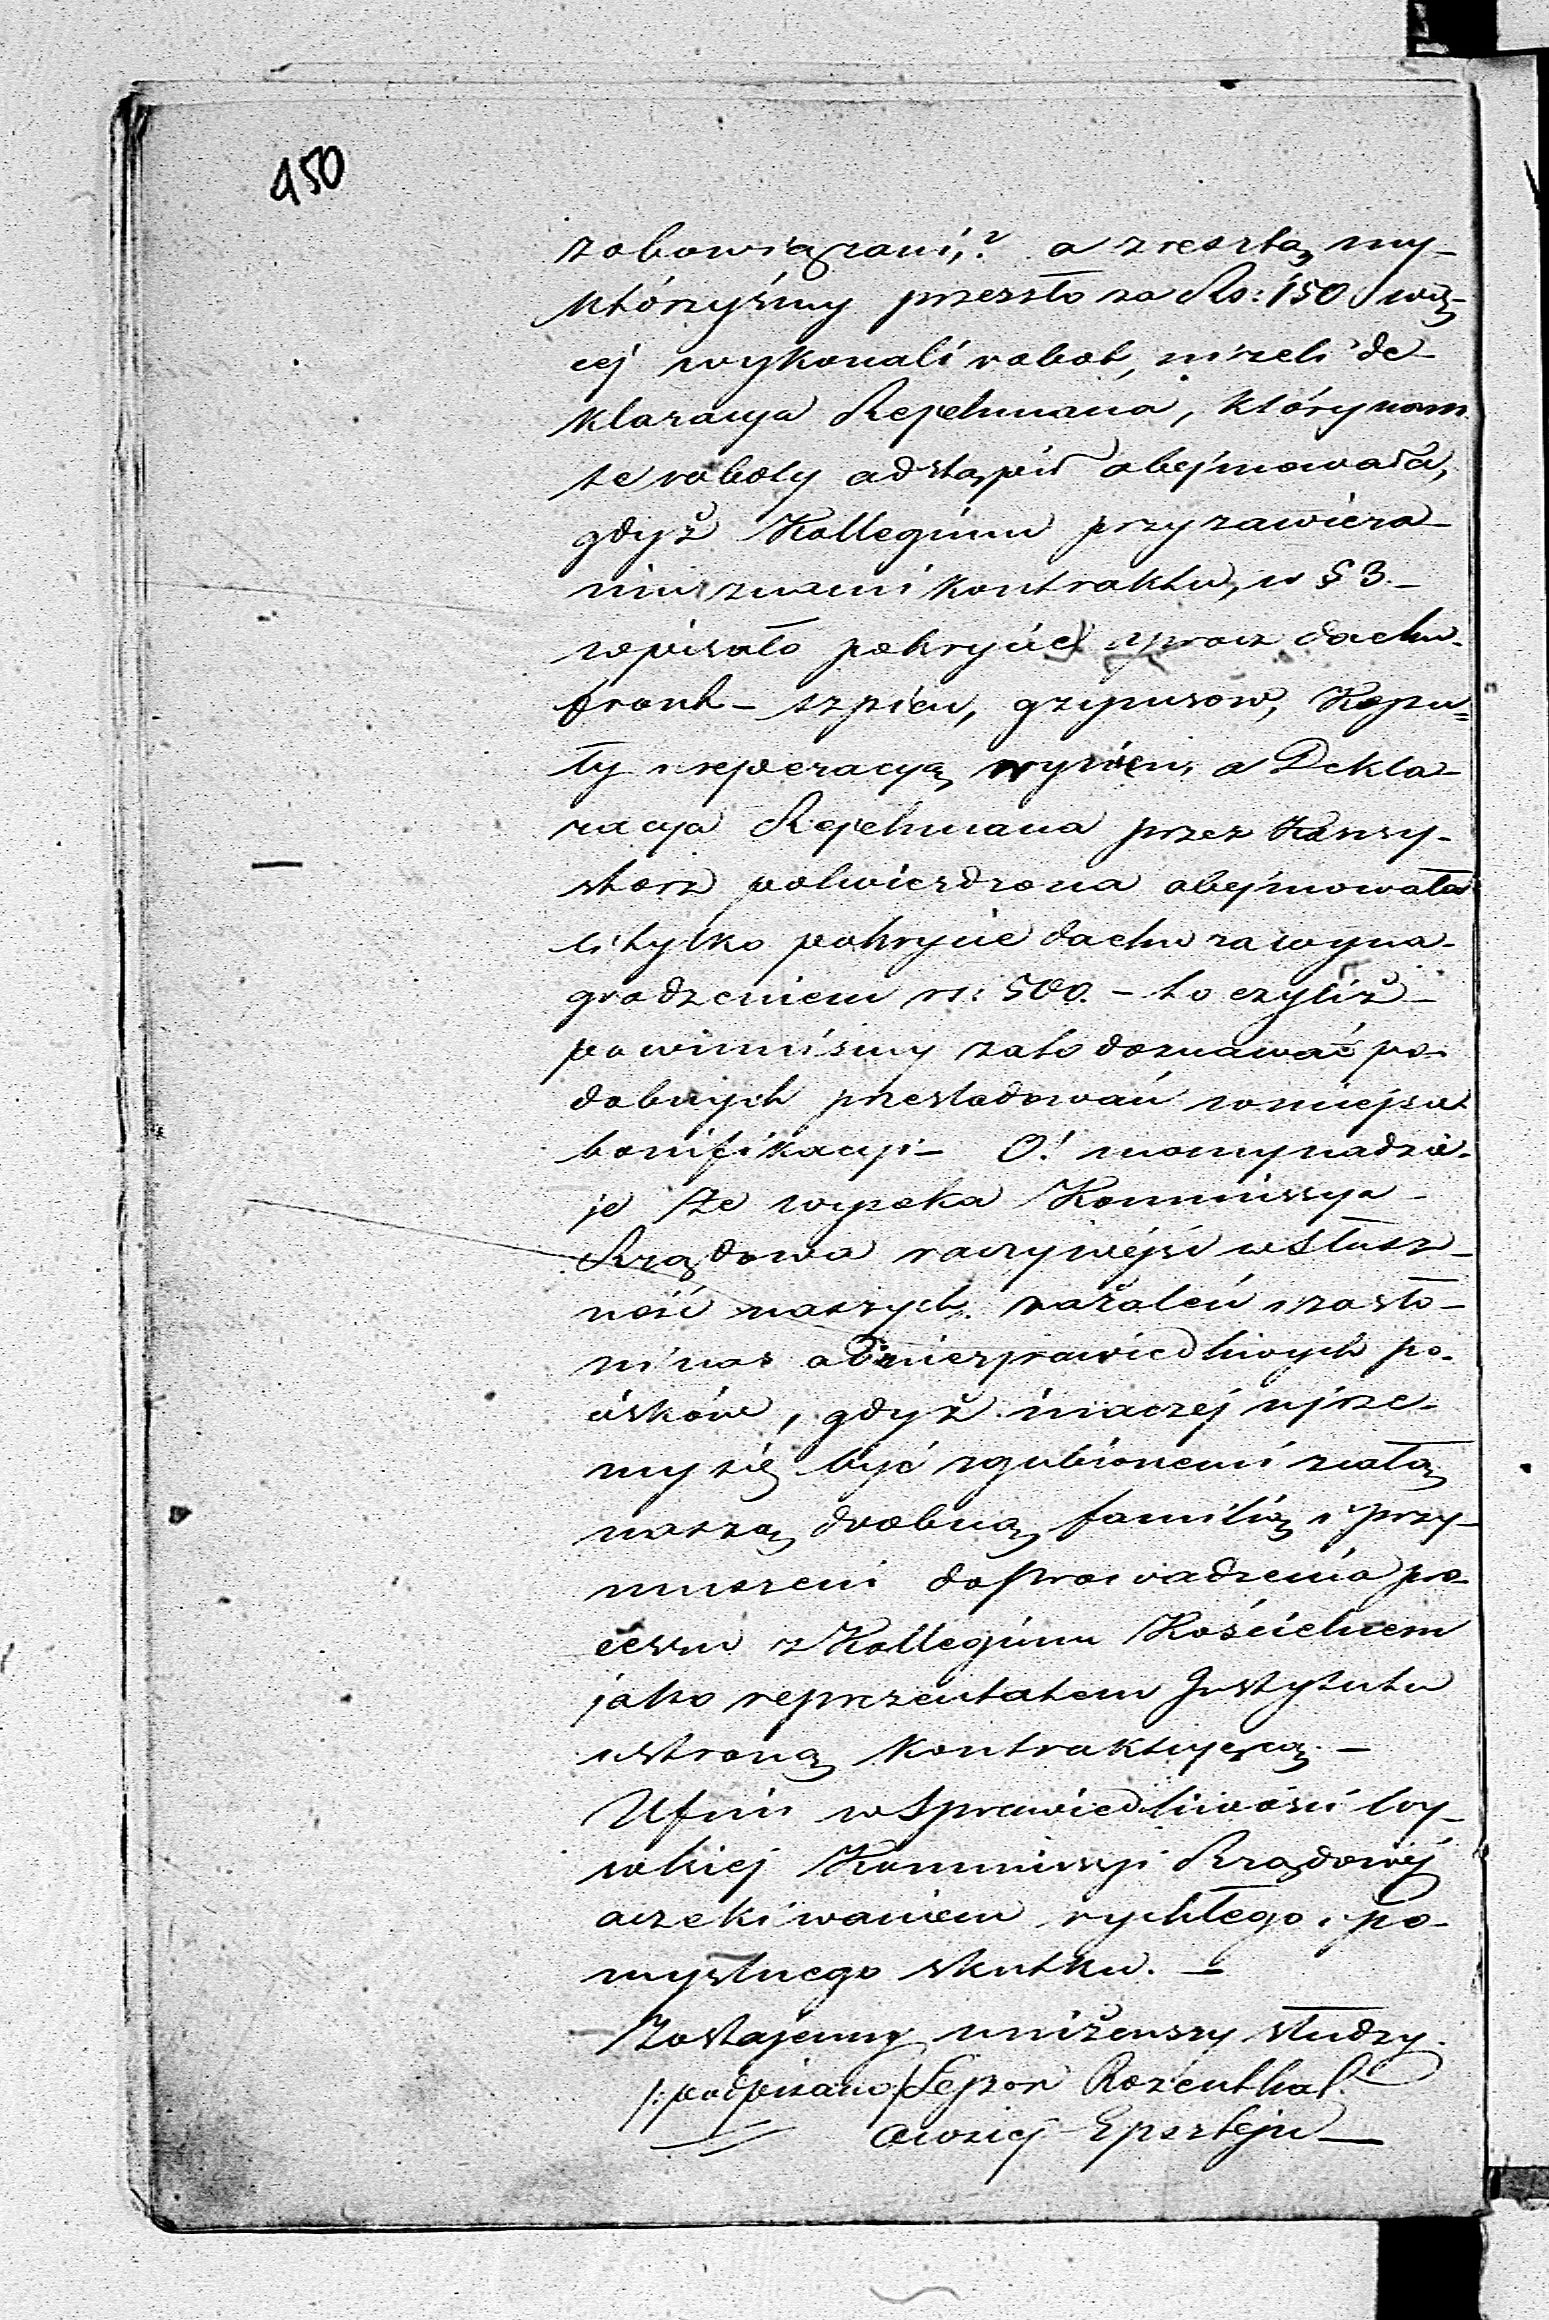 450
zobowiązani,? a zresztą my-
którzyśmy przeszło za Rs: 150 wię-
cej wykonali robot, niżeli de-
klaracya Rephmana, który nam
te roboty odstąpił obejmowała,
gdyż Kollegium przy zawiera-
niu z nami kontraktu, w § 3.-
wpisało pokrycie oprocz dachu
front - szpicu, gzymsow, Kopu=
ły i reperacyą a Dekla-
racya Rephmana przez Konsy-
storz potwierdzona obejmowała
li tylko pokrycie dachu za wyna-
grodzeniem rs: 500. - to czyliż -
powinniśmy zato doznawać po-
dobnych prześladowań w miejsce
bonifikacyi - O! mamy nadzie-
je że wysoka Kommissya -
Rządowa raczy wejść w słusz-
ność naszych zażaleń i zasło-
ni nas od niesprawiedliwych po-
cisków, gdyż inaczej ujrze-
my się być zgubionemi z całą
naszą drobną familią i przy-
muszeni do prowadzenia pro-
cessu z Kollegium Kościelnem
jako reprezentatem Instytutu
i stroną kontraktującą. -
Ufni w Sprawiedliwości Wy-
sokiej Kommissyi Rządowéj
oczekiwaniem rychłego i po-
myślnego skutku. -
Zostajemy uniżenszy słudzy.
/: podpisano/ Lejzor Rozenthal.
Epsztejn -